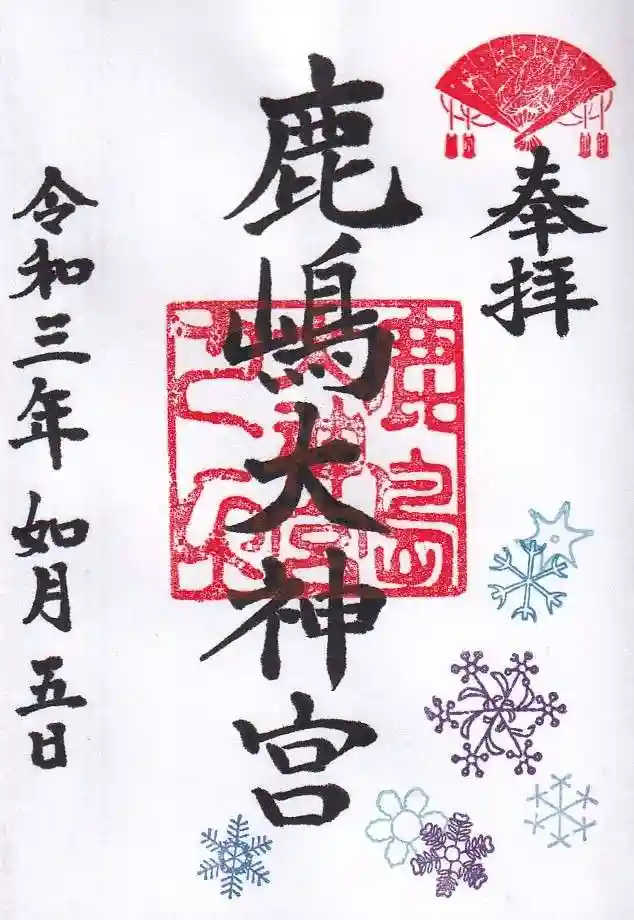 奉拝
鹿嶋大神宮
令和三年如月五日